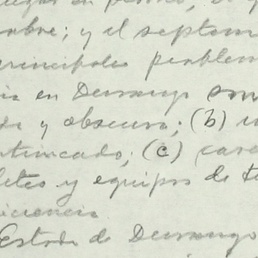 mbre; y el septem
principales problem
en Durango son
y obscuro; (b) u
intrincado; (c) care
letes y equipos de t
iciencia
Estado de Durango